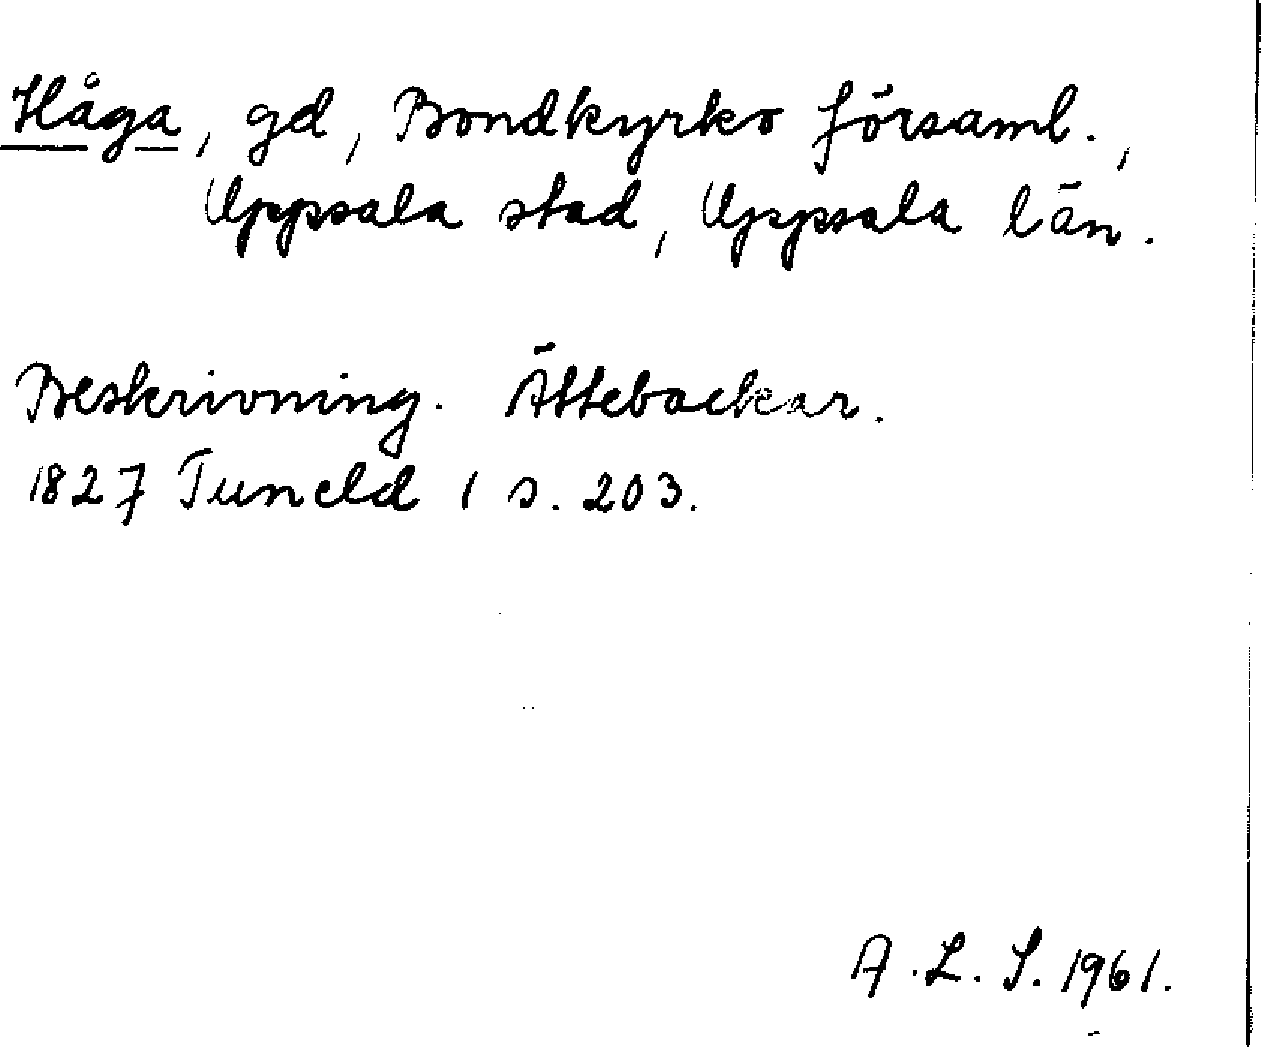 Håga, gd, Bondkyrko församl.,
Uppsala stad, Uppsala län.
Beskrivning. Ättebackar.
1827 Tuneld 1 s. 203.
A. L. S. 1961.